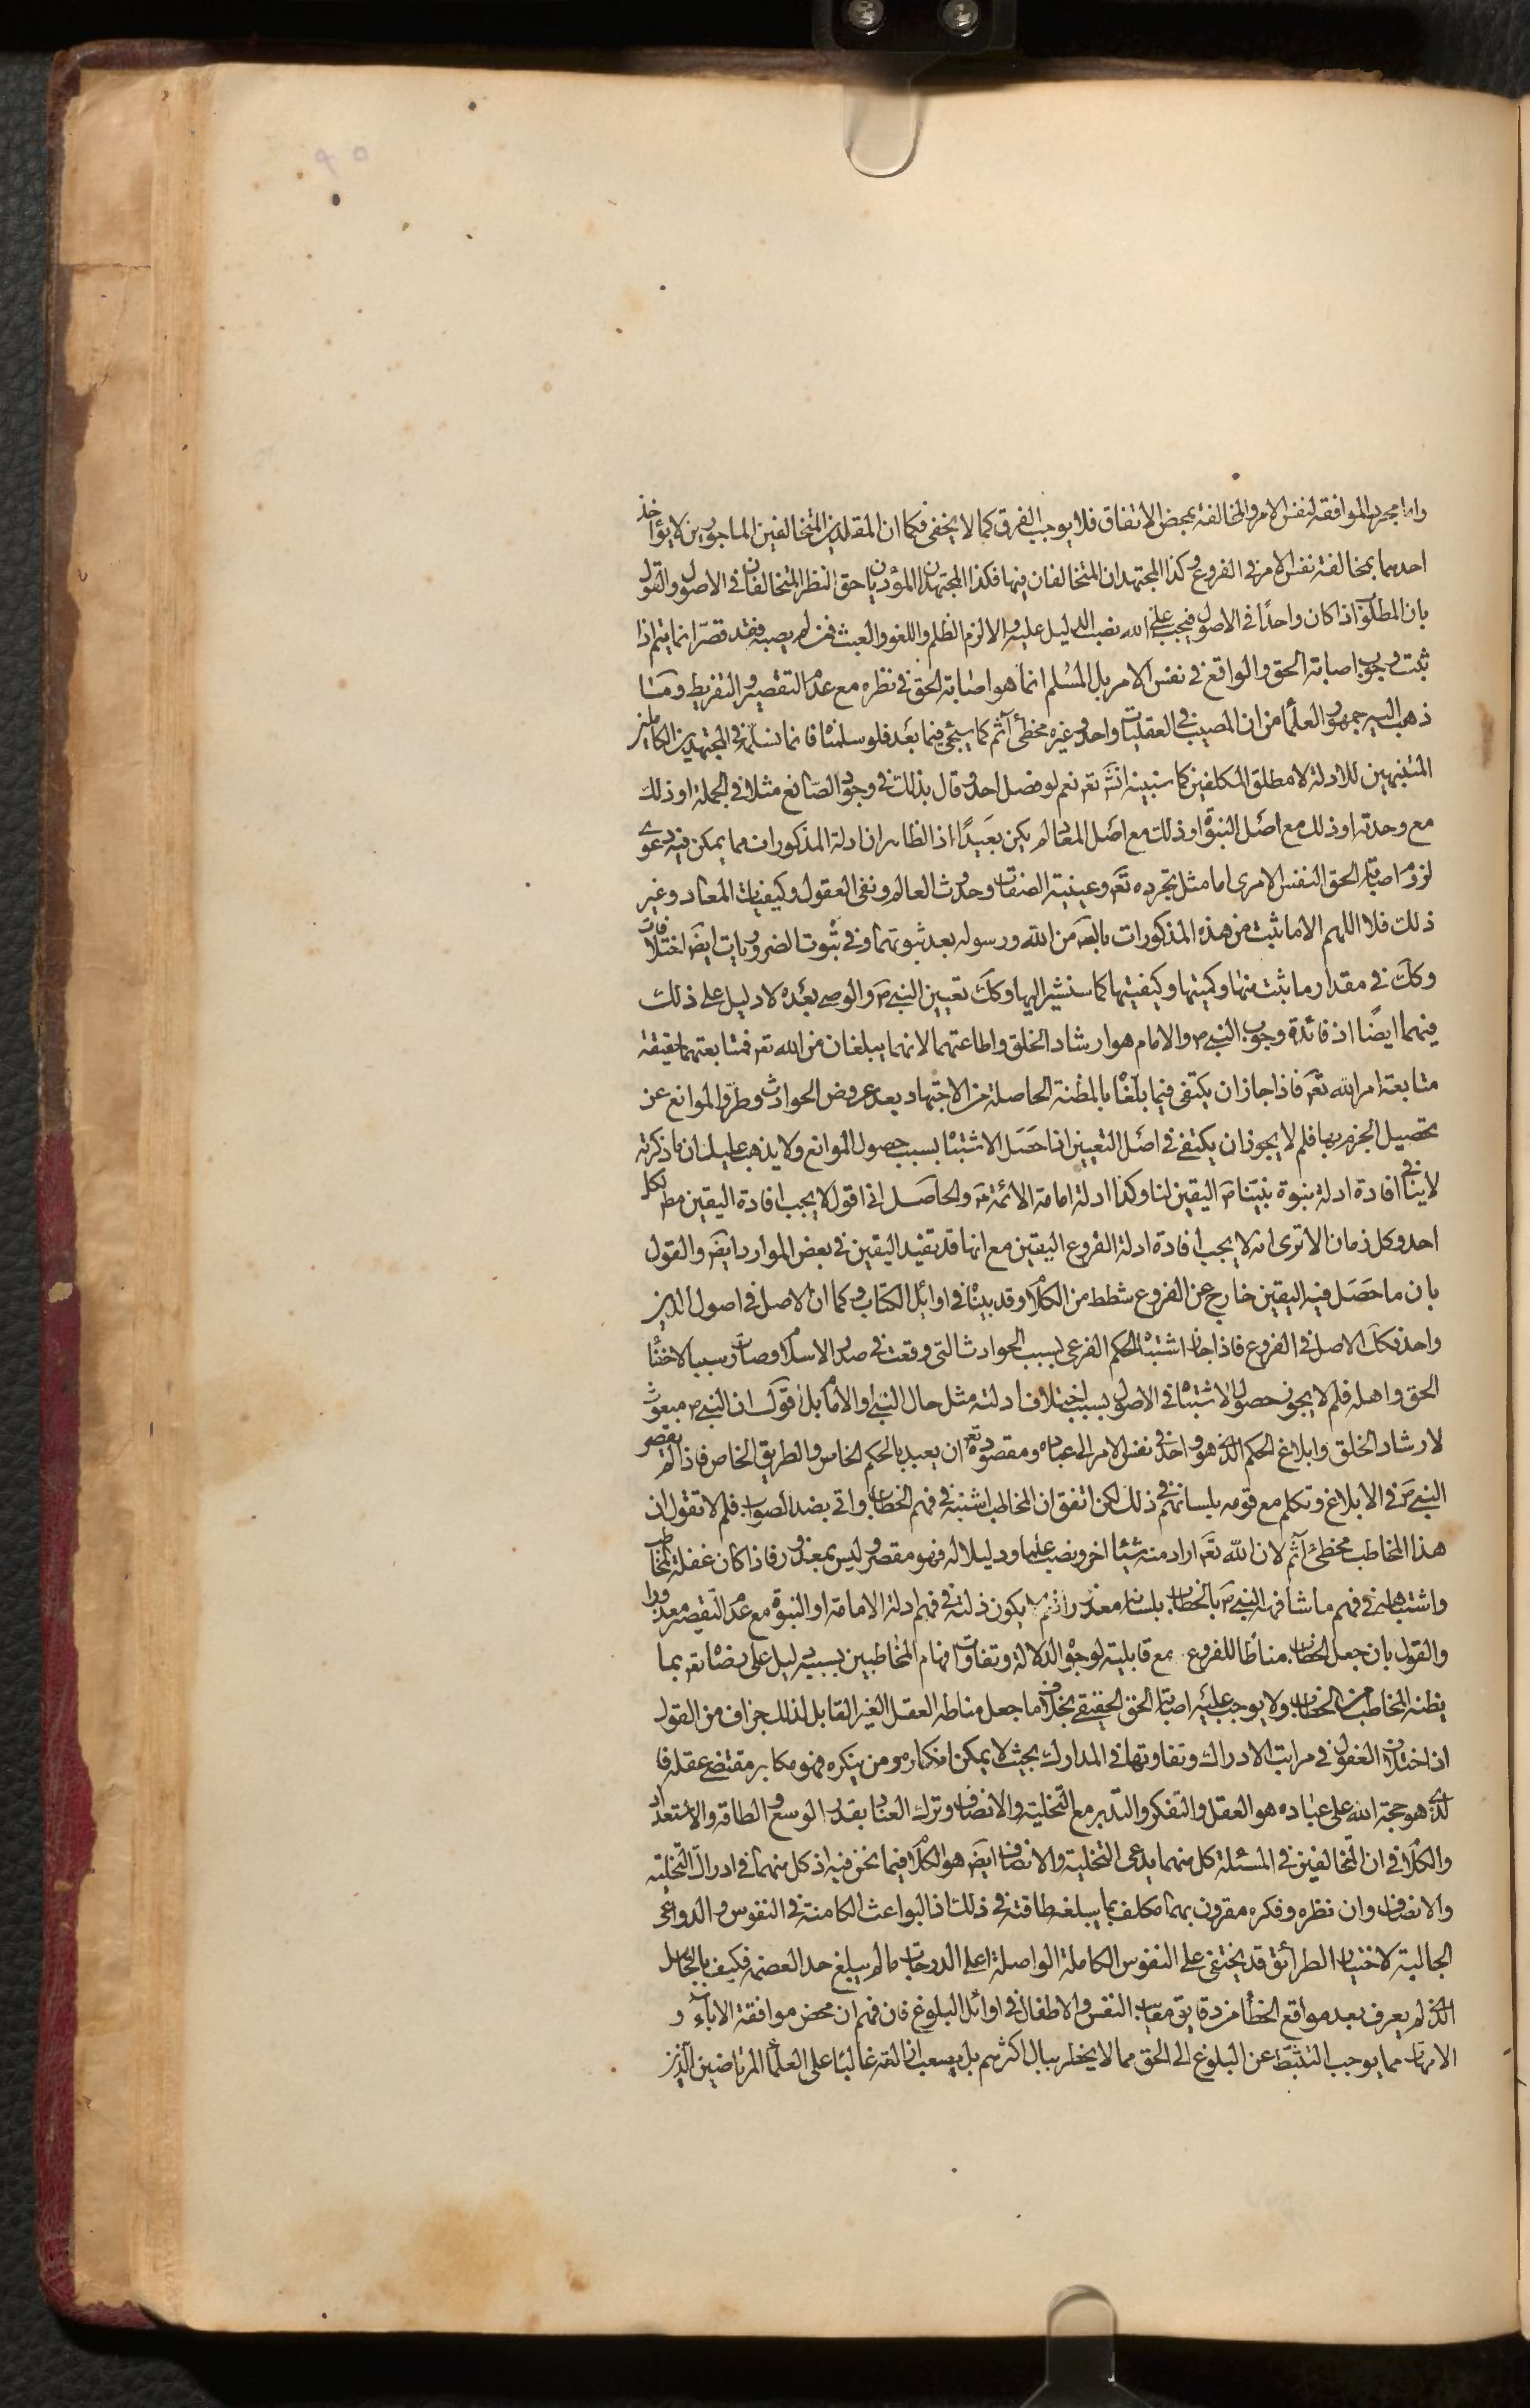 واما مجرد الموافقة لنفس الامر والمخالفة بمحض الاتفاق فلا يوجب الفرق كما لا يخفى فكما ان المقلدين المتخالفين الماجورين لا يؤاخذ
احدهما بمخالفة نفس الامر في الفروع وكذا المجتهدان المتخالفان فيها فكذا المجتهدان المؤديان حق النظر المتخالفان في الاصول والقول
بان المطلوب اذا كان واحدًا في الاصول فيجب على الله نصب الدليل عليه والا لزم الظلم واللغو والعبث فمن لم يصبه فقد قصّر انما يتم اذا
ثبت وجوب اصابة الحق والواقع في نفس الامر بل المسلم انما هو اصابة الحق في نظره مع عدم التقصير والتفريط وما
ذهب اليه جمهور العلماء من ان المصيب في العقليات واحد وغيره مخطئ آثم كما سيجئ فيما بعد فلو سلمناه فانما نسلمه في المجتهدين الكاملين
المتنبهين للادلة لا مطلق المكلفين كما سنبينه انش تعه نعم لو فصل احد وقال بذلك في وجود الصّانع مثلا في الجملة او ذلك
مع وحدته او ذلك مع اصل النبوة او ذلك مع اصل المعاد لم يكن بعيدًا اذ الظاهر ان ادلة المذكورات مما يمكن فيه دعوى
لزوم اصابة الحق النفس الامرى اما مثل تجرده تع وعينية الصفات وحدوث العالم ونفى العقول وكيفيات المعاد وغير
ذلك فلا اللهم الا ما ثبت من هذه المذكورات بالبديهة من الله ورسوله بعد ثبوتهما وفي ثبوت الضروريات ايض اختلافات
وكك في مقدار ما ثبت منها وكميتها وكيفيتها كما سنشير اليها وكك تعيين النبي ص والوصي بعده لا دليل على ذلك
فيهما ايضًا اذ فائدة وجوب النبي ص والامام هو ارشاد الخلق واطاعتهما لانهما يبلغان من الله تعه فمتابعتهما حقيقة
متابعة امر الله تع فاذا جاز ان يكتفى فيما بلغنا بالمظنة الحاصلة من الاجتهاد بعد عروض الحوادث وطرو الموانع عن
تحصيل الجزم بها فلم لا يجوز ان يكتفى في اصل التعيين اذا حصل الاشتباه بسبب حصول الموانع ولا يذهب عليك ان ما ذكرته
لا ينافي افادة ادلة نبوة نبينا ص اليقين لنا وكذا ادلة امامة الائمة ع والحاصل اني اقول لا يجب افادة اليقين مط لكل
احد وكل زمان الا ترى انه لا يجب افادة ادلة الفروع اليقين مع انها قد تفيد اليقين في بعض الموارد ايض والقول
بان ما حصل فيه اليقين خارج عن الفروع شطط من الكلام وقد بيناه في اوائل الكتاب وكما ان الاصل في اصول الدين
واحد فكك الاصل في الفروع فاذا جاز اشتباه الحكم الفرعى بسبب الحوادث التى وقعت في صدر الاسلام وصارت سببا لاختفاء
الحق واهله فلم لا يجوز حصول الاشتباه في الاصول بسبب اختلاف ادلته مثل حال النبي او الامام بل اقول ان النبي ص مبعوث
لارشاد الخلق وابلاغ الحكم الذي هو واحد في نفس الامر الى عباده ومقصوده تع ان يعبد بالحكم الخاص والطريق الخاص فاذا لم يقصر
النبي ص في الابلاغ وتكلم مع قومه بلسانهم في ذلك لكن اتفق ان المخاطب اشتبه في فهم الخطاب واتى بضد الصواب فلم لا تقول ان
هذا المخاطب مخطئ آثم لان الله تع اراد منه شيئا اخر ونصب علما ودليلا له فهو مقصر وليس بمعذور فاذا كان غفلة المخاطب
واشتباهه في فهم ما شافهه النبي ص بالخطاب بلسانه معذورا فلم لا يكون ذلك في فهم ادلة الامامة او النبوة مع عدم التقصير معذورا
والقول بان جعل الخطاب مناطا للفروع مع قابليته لوجوه الدلالة وتفاوت افهام المخاطبين بسببه دليل على رضاه تعه بما
يظنه المخاطب من الخطاب ولا يوجب عليه اصابة الحق الحقيقي بخلاف ما جعل مناطه العقل الغير القابل لذلك جزاف من القول
اذ اختلاف العقول في مراتب الادراك وتفاوتها في المدارك بحيث لا يمكن انكاره ومن ينكره فهو مكابر مقتضى عقله فا
لذي هو حجة الله على عباده هو العقل والتفكر والتدبر مع التخلية والانصاف وترك العناد بقدر الوسع والطاقة والاستعداد
والكلام في ان المتخالفين في المسئلة كل منهما يدعى التخلية والانصاف ايض هو الكلام فيما نحن فيه اذ كل منهما في ادراك التخلية
والانصاف وان نظره وفكره مقرون بهما مكلف بما يبلغه طاقته في ذلك اذ البواعث الكامنة في النفوس والدواعى
الجالبة لاختيار الطرائق قد يختفى على النفوس الكاملة الواصلة اعلى الدرجات ما لم يبلغ حد العصمة فكيف بالجاهل
الذي لم يعرف بعد مواقع الخطأ من دقايق معايب النفس والاطفال في اوائل البلوغ فان فهم ان محض موافقة الاباء و
الامهات مما يوجب التثبط عن البلوغ الى الحق مما لا يخطر ببال اكثرهم بل يصعب ازالته غالبا على العلماء المرتاضين الذين